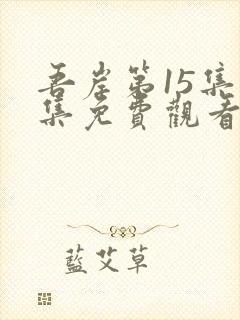 吾岸第15集
集免費觀看
藍艾草